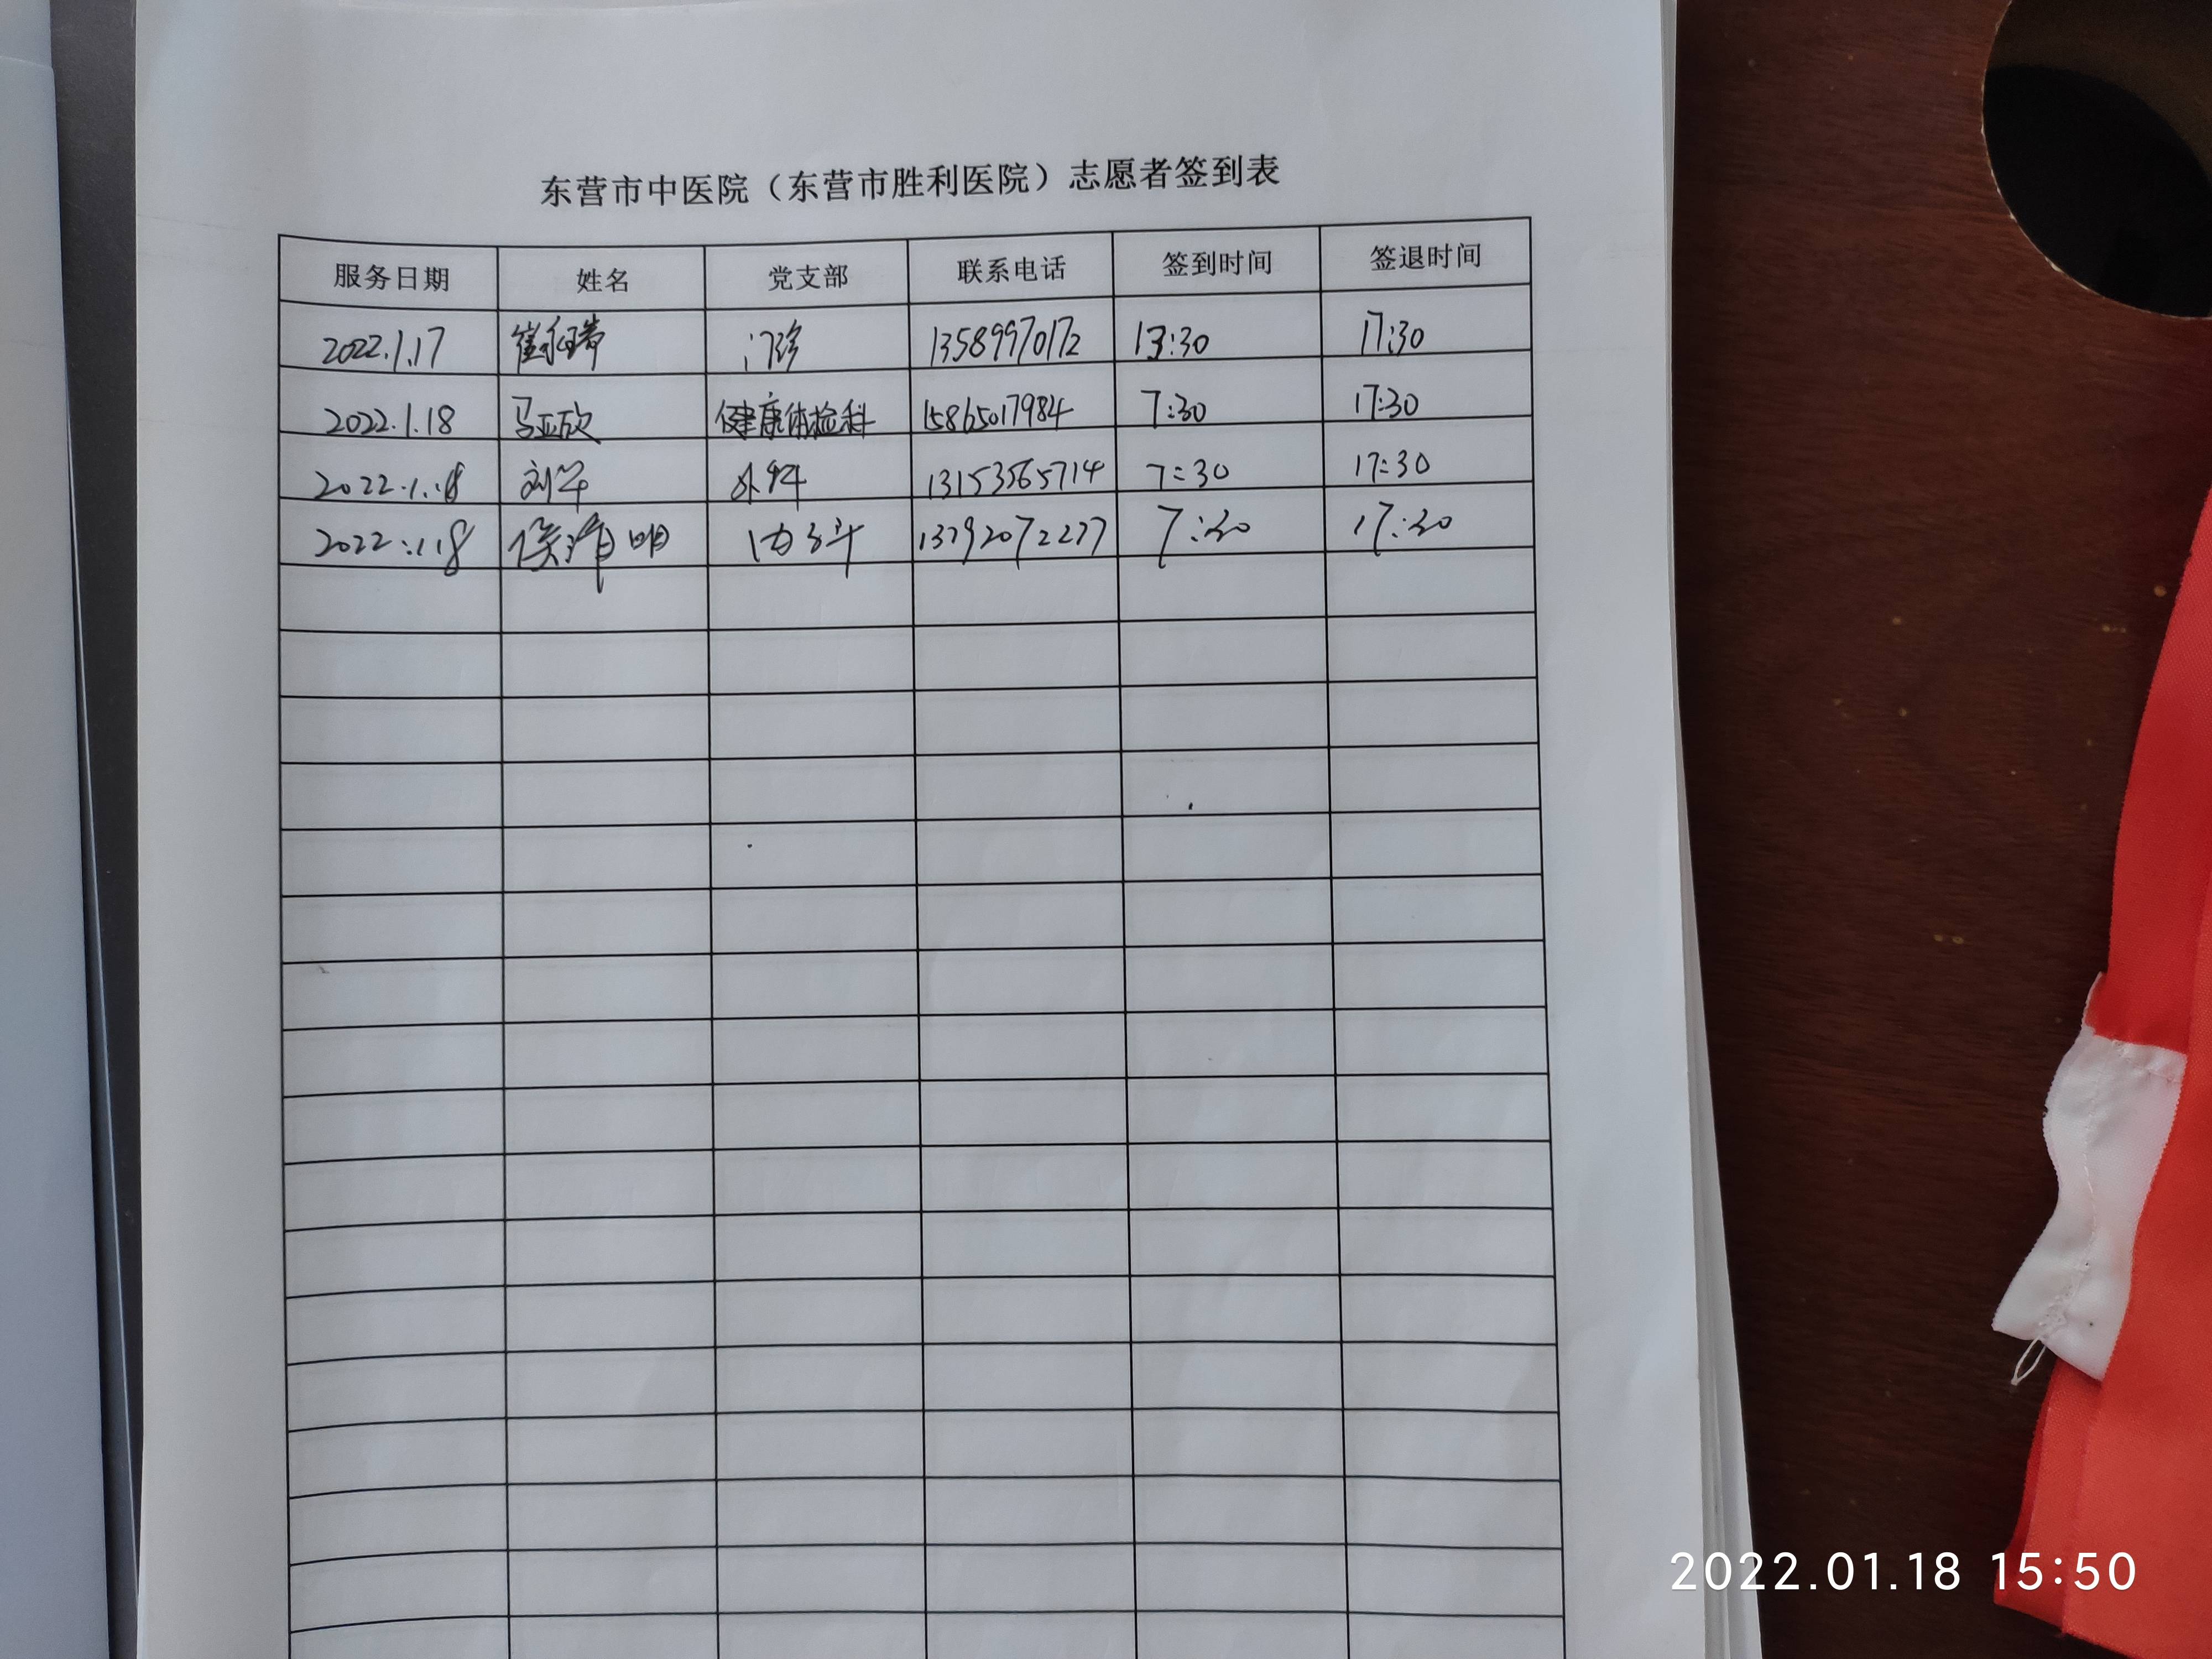 东营市中医院（东营市胜利医院）志愿者签到表
服务日期 姓名 党支部 联系电话 签到时间 签退时间
2022.1.17 崔 门诊 13589970172 13:30 17:30
2022.1.18 马亚欣 健康体检科 15865017984 7:30 17:30
2022.1.18 刘军 外科 13153565714 7:30 17:30
2022.1.18 侯清明 内科 13792072277 7:30 17:30
2022.01.18 15:50